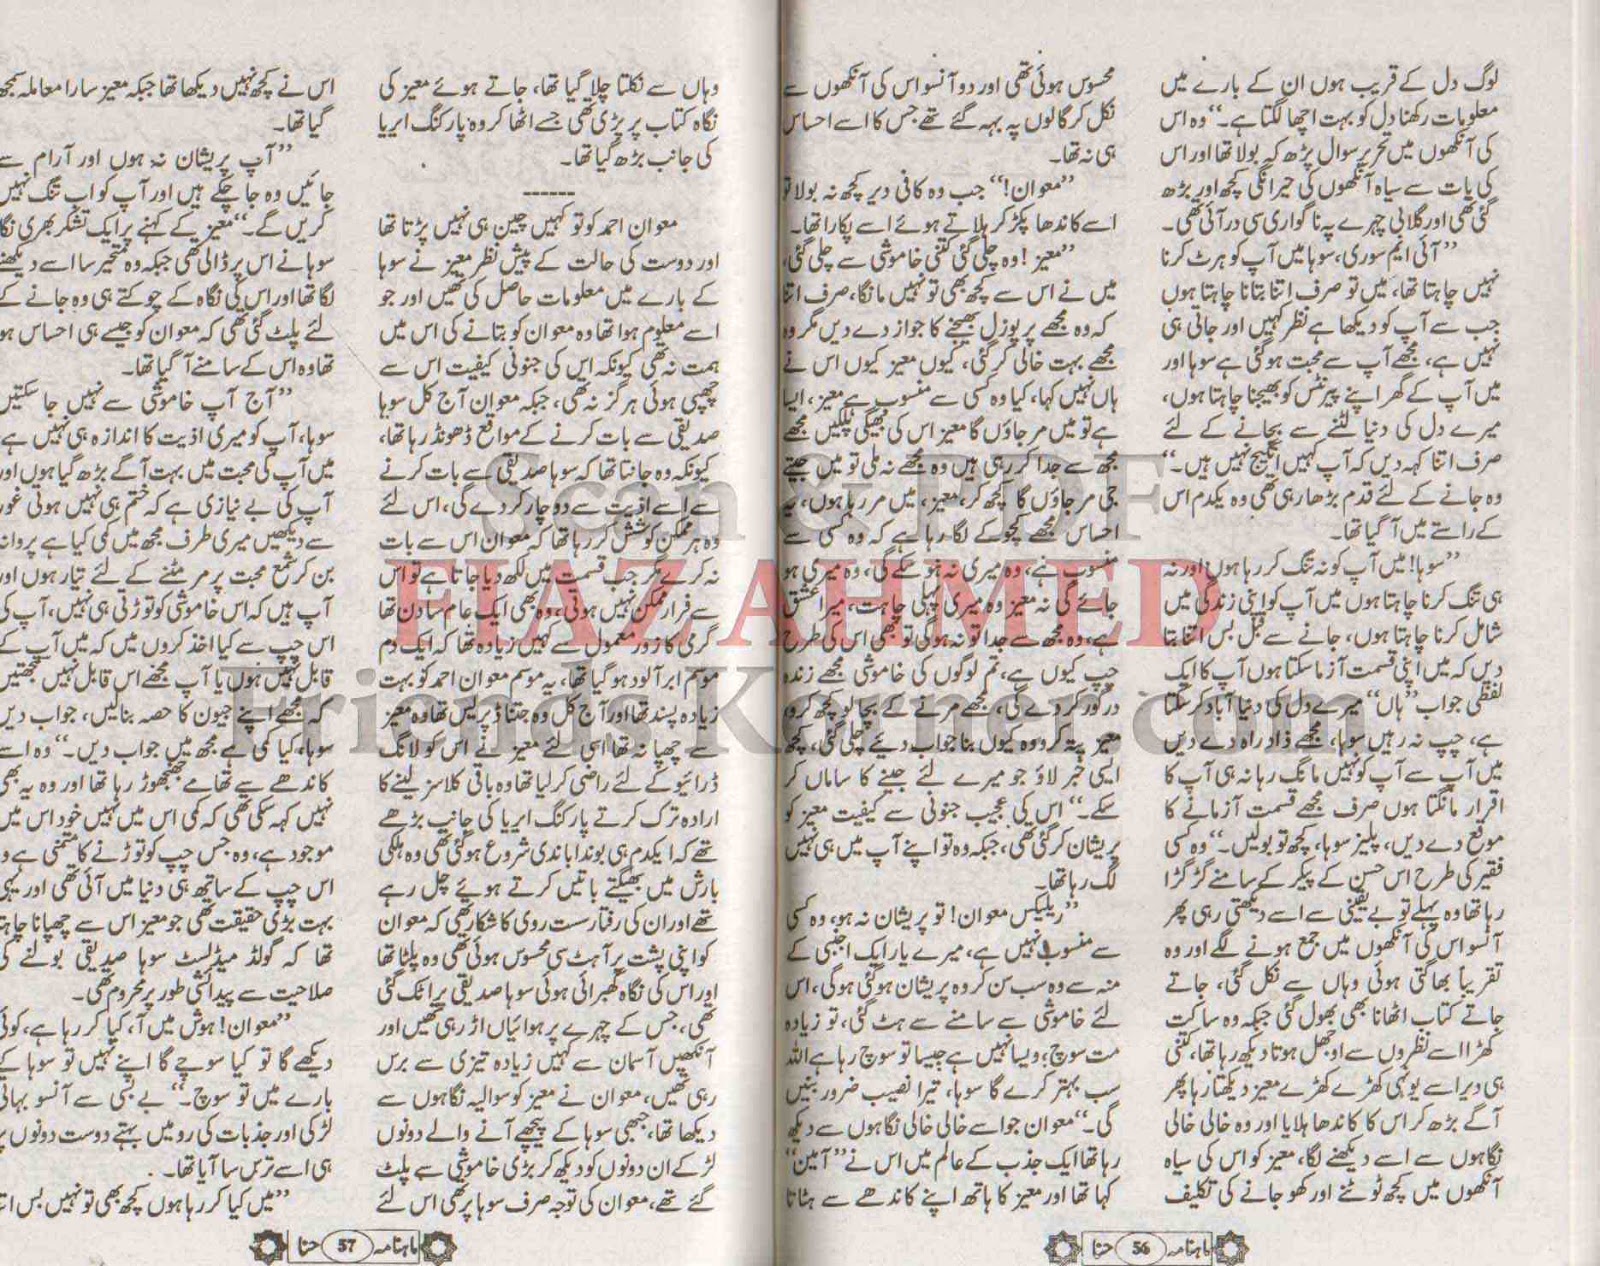 لوگ دل کے قریب ہوں ان کے بارے میں
معلومات رکھنا دل کو بہت اچھا لگتا ہے۔“ وہ اس
کی آنکھوں میں تحریر سوال پڑھ کہ بولا تھا اور اس
کی بات سے سیاہ آنکھوں کی حیرانگی کچھ اور بڑھ
گئی تھی اور گلابی چہرے پہ ناگواری سی در آئی تھی۔
”آئی ایم سوری، سوہا میں آپ کو ہرٹ کرنا
نہیں چاہتا تھا، میں تو صرف اتنا بتانا چاہتا ہوں
جب سے آپ کو دیکھا ہے نظر کہیں اور جاتی ہی
نہیں ہے، مجھے آپ سے محبت ہو گئی ہے سوہا اور
میں آپ کے گھر اپنے پیرنٹس کو بھیجنا چاہتا ہوں،
میرے دل کی دنیا لٹنے سے بچانے کے لئے
صرف اتنا کہہ دیں کہ آپ کہیں انگیج نہیں ہیں۔“
وہ جانے کے لئے قدم بڑھا رہی تھی وہ یکدم اس
کے راستے میں آ گیا تھا۔
”سوہا! میں آپ کو نہ تنگ کر رہا ہوں اور نہ
ہی تنگ کرنا چاہتا ہوں میں آپ کو اپنی زندگی میں
شامل کرنا چاہتا ہوں، جانے سے قبل بس اتنا بتا
دیں کہ میں اپنی قسمت آزما سکتا ہوں آپ کا ایک
لفظی جواب ”ہاں“ میرے دل کی دنیا آباد کر سکتا
ہے، چپ نہ رہیں سوہا، مجھے زاد راہ دے دیں
میں آپ سے آپ کو نہیں مانگ رہا نہ ہی آپ کا
اقرار مانگتا ہوں صرف مجھے قسمت آزمانے کا
موقع دے دیں، پلیز سوہا، کچھ تو بولیں۔“ وہ کسی
فقیر کی طرح اس حسن کے پیکر کے سامنے گڑگڑا
رہا تھا وہ پہلے تو بے یقینی سے اسے دیکھتی رہی پھر
آنسو اس کی آنکھوں میں جمع ہونے لگے اور وہ
تقریباً بھاگتی ہوئی وہاں سے نکل گئی، جاتے
جاتے کتاب اٹھانا بھی بھول گئی جبکہ وہ ساکت
کھڑا اسے نظروں سے اوجھل ہوتا دیکھ رہا تھا، کتنی
ہی دیر اسے یونہی کھڑے کھڑے معیز دیکھتا رہا پھر
آگے بڑھ کر اس کا کاندھا ہلایا اور وہ خالی خالی
نگاہوں سے اسے دیکھنے لگا، معیز کو اس کی سیاہ
آنکھوں میں کچھ ٹوٹنے اور کھو جانے کی تکلیف
محسوس ہوئی تھی اور دو آنسو اس کی آنکھوں سے
نکل کر گالوں پہ بہہ گئے تھے جس کا اسے احساس
ہی نہ تھا۔
”معوان!“ جب وہ کافی دیر کچھ نہ بولا تو
اسے کاندھا پکڑ کر ہلاتے ہوئے اسے پکارا تھا۔
”معیز! وہ چلی گئی کتنی خاموشی سے چلی گئی،
میں نے اس سے کچھ بھی تو نہیں مانگا، صرف اتنا
کہ وہ مجھے پرپوزل بھیجنے کا جواز دے دیں مگر وہ
مجھے بہت خالی کر گئی، کیوں معیز کیوں اس نے
ہاں نہیں کہا، کیا وہ کسی سے منسوب ہے معیز، ایسا
ہے تو میں مر جاؤں گا معیز اس کی بھیگی پلکیں مجھے
مجھ سے جدا کر رہی ہیں وہ مجھے نہ ملی تو میں جیتے
جی مر جاؤں گا کچھ کر، معیز، میں مر رہا ہوں، یہ
احساس مجھے کچوکے لگا رہا ہے کہ وہ کسی سے
منسوب ہے، وہ میری نہ ہو سکے گی، وہ میری ہو
جائے گی نہ معیز وہ میری پہلی چاہت، میرا عشق
ہے، وہ مجھ سے جدا تو نہ ہو گی تو بھی اس کی طرح
چپ کیوں ہے، تم لوگوں کی خاموشی مجھے زندہ
درگور کر دے گی، مجھے مرنے کے بچا لو کچھ کرو،
معیز پتہ کرو وہ کیوں بنا جواب دیئے چلی گئی، کچھ
ایسی خبر لاؤ جو میرے لئے جینے کا ساماں کر
سکے۔“ اس کی عجیب جنونی سے کیفیت معیز کو
پریشان کر گئی تھی، جبکہ وہ تو اپنے آپ میں ہی نہیں
لگ رہا تھا۔
”ریلیکس معوان! تو پریشان نہ ہو، وہ کسی
سے منسوب نہیں ہے، میرے یار ایک اجنبی کے
منہ سے وہ سب سن کر وہ پریشان ہو گئی ہو گی، اس
لئے خاموشی سے سامنے سے ہٹ گئی، تو زیادہ
مت سوچ، ویسا نہیں ہے جیسا تو سوچ رہا ہے اللہ
سب بہتر کرے گا سوہا، تیرا نصیب ضرور بنیں
گی۔“ معوان جو اسے خالی خالی نگاہوں سے دیکھ
رہا تھا ایک جذب کے عالم میں اس نے ”آمین“
کہا تھا اور معیز کا ہاتھ اپنے کاندھے سے ہٹاتا
ماہنامہ 56 حنا
وہاں سے نکلتا چلا گیا تھا، جاتے ہوئے معیز کی
نگاہ کتاب پر پڑی تھی جسے اٹھا کر وہ پارکنگ ایریا
کی جانب بڑھ گیا تھا۔
------
معوان احمد کو تو کہیں چین ہی نہیں پڑتا تھا
اور دوست کی حالت کے پیش نظر معیز نے سوہا
کے بارے میں معلومات حاصل کی تھیں اور جو
اسے معلوم ہوا تھا وہ معوان کو بتانے کی اس میں
ہمت نہ تھی کیونکہ اس کی جنونی کیفیت اس سے
چھپی ہوئی ہرگز نہ تھی، جبکہ معوان آج کل سوہا
صدیقی سے بات کرنے کے مواقع ڈھونڈ رہا تھا،
کیونکہ وہ جانتا تھا کہ سوہا صدیقی سے بات کرنے
سے اسے اذیت سے دوچار کر دے گی، اس لئے
وہ ہر ممکن کوشش کر رہا تھا کہ معوان اس سے بات
نہ کرے مگر جب قسمت میں لکھ دیا جاتا ہے تو اس
سے فرار ممکن نہیں ہوتی، وہ بھی ایک عام سا دن تھا
گرمی کا زور معمول سے کہیں زیادہ تھا کہ ایک دم
موسم ابر آلود ہو گیا تھا، یہ موسم معوان احمد کو بہت
زیادہ پسند تھا اور آج کل وہ جتنا ڈپریس تھا وہ معیز
سے چھپا نہ تھا اسی لئے معیز نے اس کو لانگ
ڈرائیو کے لئے راضی کر لیا تھا وہ باقی کلاسز لینے کا
ارادہ ترک کرتے پارکنگ ایریا کی جانب بڑھے
تھے کہ ایکدم ہی بوندا باندی شروع ہو گئی تھی وہ ہلکی
بارش میں بھیگتے باتیں کرتے ہوئے چل رہے
تھے اور ان کی رفتار سست روی کا شکار تھی کہ معوان
کو اپنی پشت پر آہٹ سی محسوس ہوئی تھی وہ پلٹا تھا
اور اس کی نگاہ گھبرائی ہوئی سوہا صدیقی پر اٹک گئی
تھی، جس کے چہرے پر ہوائیاں اڑ رہی تھیں اور
آنکھیں آسمان سے کہیں زیادہ تیزی سے برس
رہی تھیں، معوان نے معیز کو سوالیہ نگاہوں سے
دیکھا تھا، جبھی سوہا کے پیچھے آنے والے دونوں
لڑکے ان دونوں کو دیکھ کر بڑی خاموشی سے پلٹ
گئے تھے، معوان کی توجہ صرف سوہا پر تھی اس لئے
اس نے کچھ نہیں دیکھا تھا جبکہ معیز سارا معاملہ سمجھ
گیا تھا۔
”آپ پریشان نہ ہوں اور آرام سے
جائیں وہ جا چکے ہیں اور آپ کو اب تنگ نہیں
کریں گے۔“ معیز کے کہنے پر ایک تشکر بھری نگاہ
سوہا نے اس پر ڈالی تھی جبکہ وہ متحیر سا اسے دیکھنے
لگا تھا اور اس کی نگاہ کے چوکتے ہی وہ جانے کے
لئے پلٹ گئی تھی کہ معوان کو جیسے ہی احساس ہوا
تھا وہ اس کے سامنے آ گیا تھا۔
”آج آپ خاموشی سے نہیں جا سکتیں
سوہا، آپ کو میری اذیت کا اندازہ ہی نہیں ہے،
میں آپ کی محبت میں بہت آگے بڑھ گیا ہوں اور
آپ کی بے نیازی ہے کہ ختم ہی نہیں ہوئی غور
سے دیکھیں میری طرف مجھ میں کمی کیا ہے پروانہ
بن کر شمع محبت پر مر مٹنے کے لئے تیار ہوں اور
آپ ہیں کہ اس خاموشی کو توڑتی ہی نہیں، آپ کی
اس چپ سے کیا اخذ کروں میں کہ میں آپ کے
قابل نہیں ہوں یا آپ مجھے اس قابل نہیں سمجھتیں
کہ مجھے اپنے جیون کا حصہ بنا لیں، جواب دیں
سوہا، کیا کمی ہے مجھ میں جواب دیں۔“ وہ اسے
کاندھے سے تھامے جھنجھوڑ رہا تھا اور وہ یہ بھی
نہیں کہہ سکی تھی کہ کمی اس میں نہیں خود اس میں
موجود ہے، وہ جس چپ کو توڑنے کا متمنی ہے وہ
اس چپ کے ساتھ ہی دنیا میں آئی تھی اور یہی
بہت بڑی حقیقت تھی جو معیز اس سے چھپانا چاہتا
تھا کہ گولڈ میڈلسٹ سوہا صدیقی بولنے کی
صلاحیت سے پیدائشی طور پر محروم تھی۔
”معوان! ہوش میں آ، کیا کر رہا ہے، کوئی
دیکھے گا تو کیا سوچے گا اپنے نہیں تو سوہا کے
بارے میں تو سوچ۔“ بے بسی سے آنسو بہاتی
لڑکی اور جذبات کی رو میں بہتے دوست دونوں پر
ہی اسے ترس سا آیا تھا۔
”میں کیا کر رہا ہوں کچھ بھی تو نہیں بس
ماہنامہ 57 حنا
Scan & PDF
FIAZ AHMED
Friends Korner.com